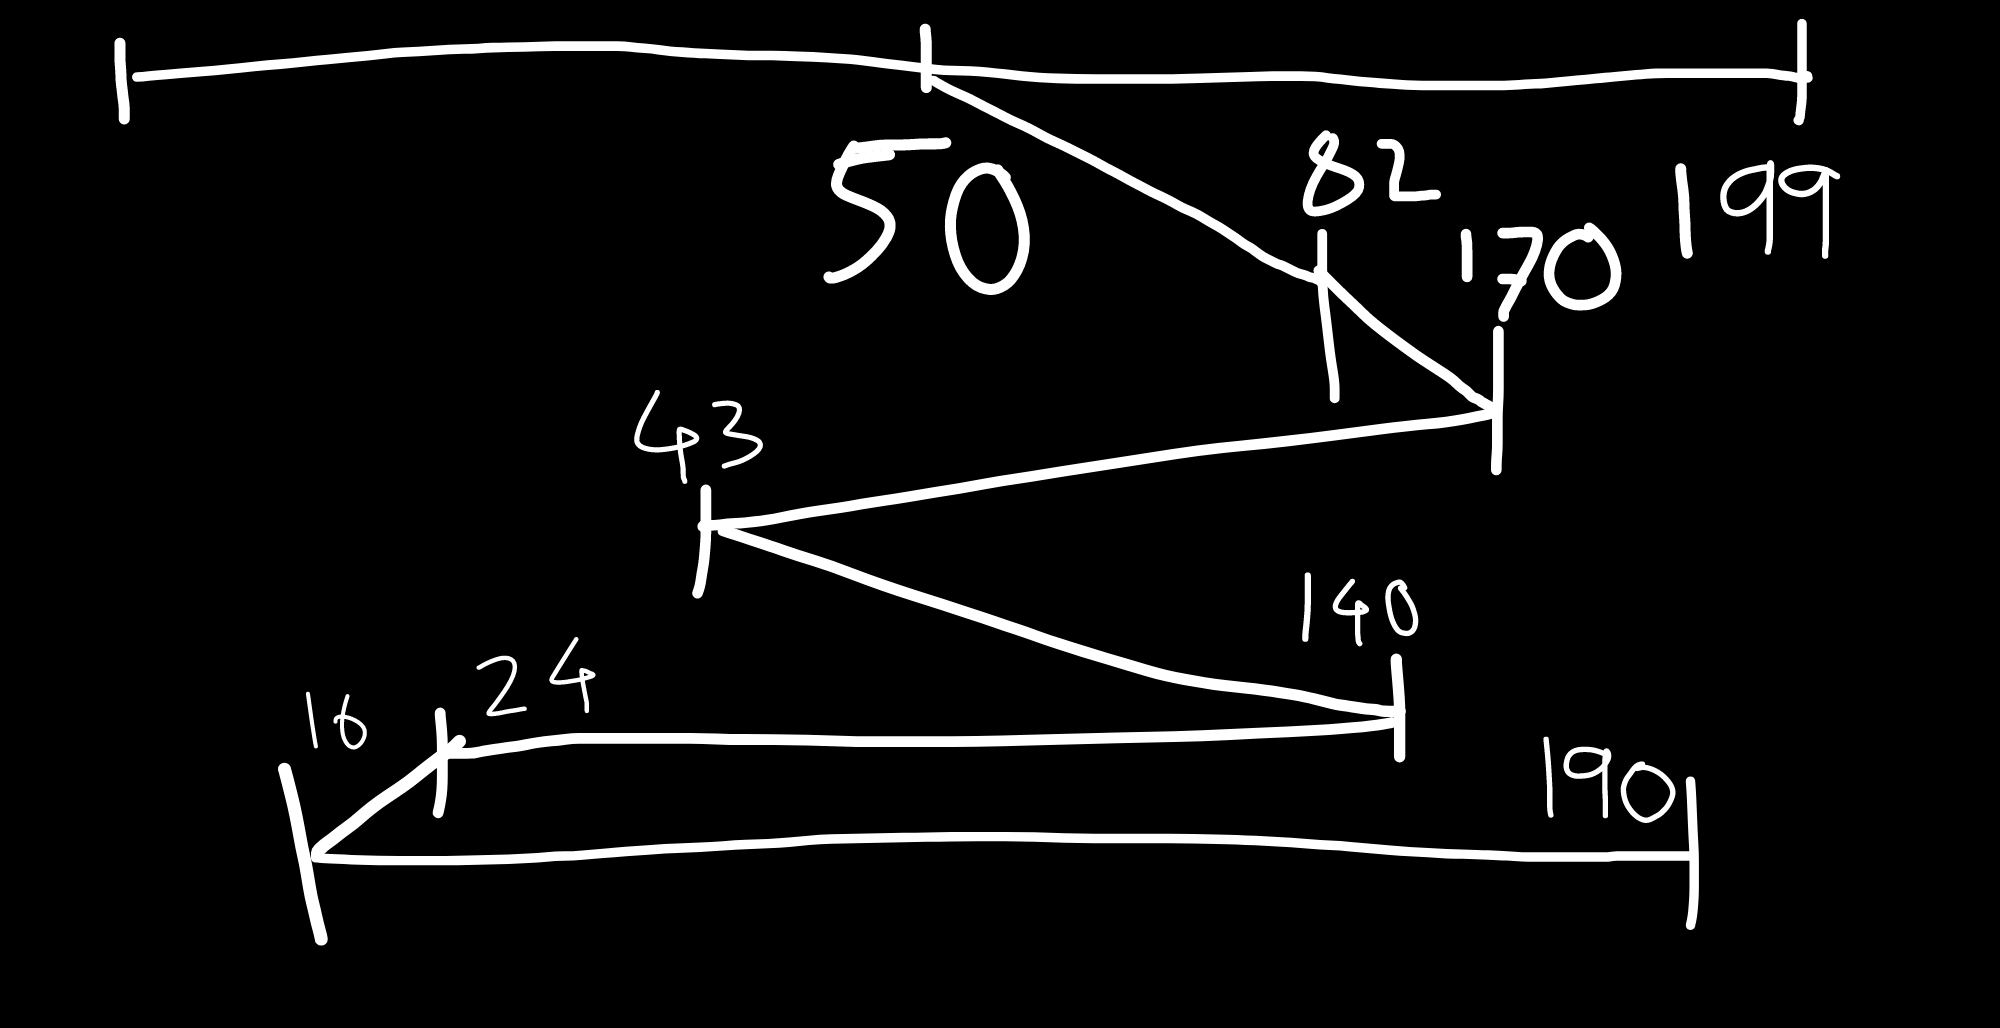 50 82 170 199
43
140
16 24
190